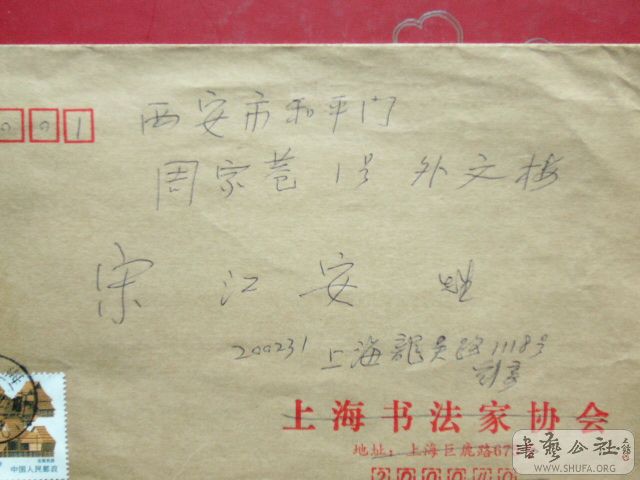 001
西安市和平门
周家巷1号 外文楼
宋江安
200231 上海龙吴路1118号
上海书法家协会
地址：上海巨鹿路67
200040
中国人民邮政
书艺公社
WWW.SHUFA.ORG